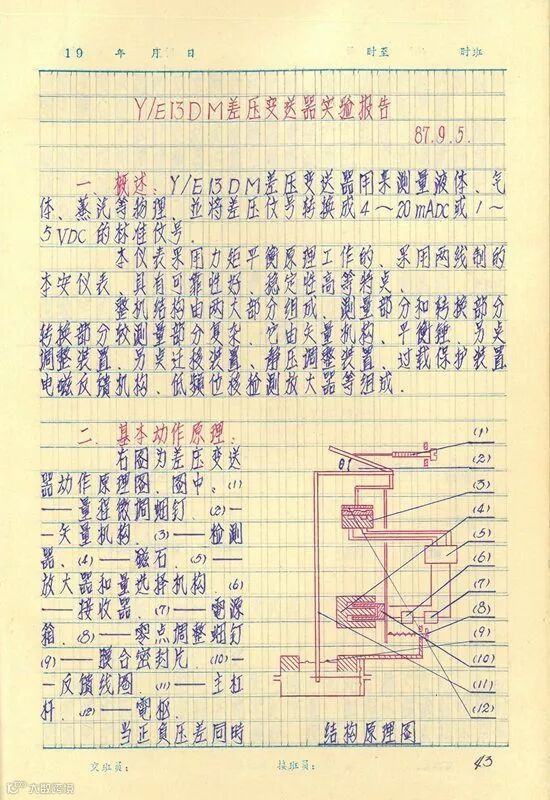 19 年 月 日 时至 时班
Y/E13DM差压变送器实验报告
87.9.5.
一、概述：Y/E13DM差压变送器用来测量液体、气
体、蒸汽等物理，並将差压信号转换成4～20mADC或1～
5VDC的标准信号.
本仪表采用力矩平衡原理工作的、采用两线制的
本安仪表、具有可靠性好、稳定性高等特点.
整机结构由两大部分组成、测量部分和转换部分
转换部分较测量部分复杂、它由矢量机构、平衡锤、另点
调整装置、另点迁移装置、静压调整装置、过载保护装置
电磁反馈机构、低频位移检测放大器等组成.
二、基本动作原理：
右图为差压变送
器动作原理图、图中、(1)
——量程微调蚏钉、(2)—
—矢量机构、(3)——检测
器、(4)——磁石、(5)——
放大器和量选择机构、(6)
——接收器、(7)——電源
箱、(8)——零点调整蚏钉
(9)——膜合密封片、(10)—
—反馈线圈、(11)——主杠
杆、(12)——電极.
当正負压差同时
θ
(1)
(2)
(3)
(4)
(5)
(6)
(7)
(8)
(9)
(10)
(11)
(12)
结构原理图
交班员： 接班员： 43
大戴跨境